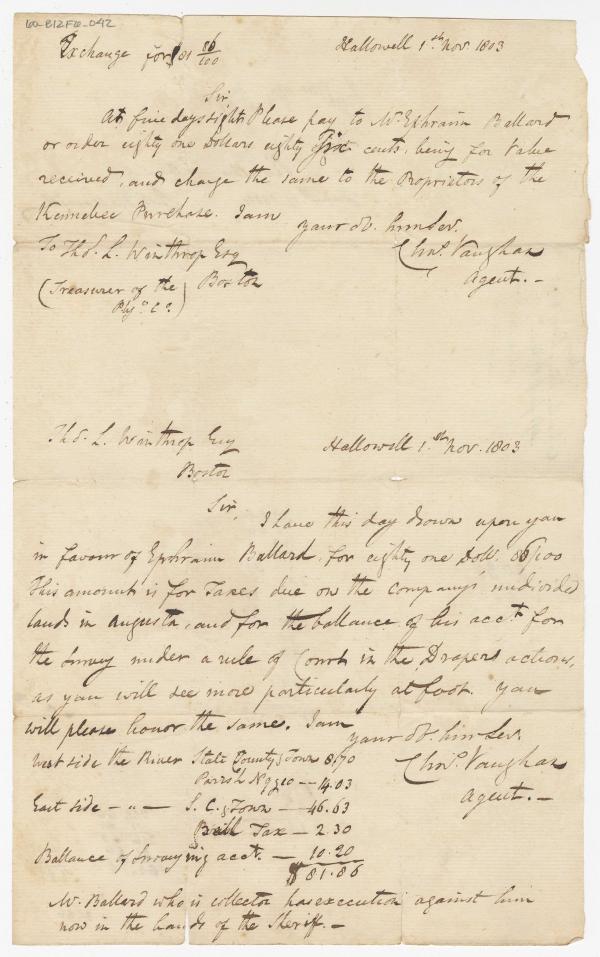 60-B12F10-042
Exchange for $81 86/100
Hallowell 1.st Nov. 1803
Sir,
At five days sight Please pay to Mr. Ephraim Ballard
or order eighty one Dollars eighty Six cents, being for Value
received, and charge the same to the Proprietors of the
Kennebec Purchase. I am
your ob. hum Ser.
To Tho.s L. Winthrop Esq
Chas. Vaughan
(Treasurer of the Boston
Agent.-
Ply.o Co.)
Tho.s L. Winthrop Esq
Hallowell 1.st Nov. 1803
Boston
Sir,
I have this day drawn upon you
in favour of Ephraim Ballard for eighty one Doll. 86/100
This amount is for Taxes due on the company's undivided
lands in Augusta, and for the ballance of his acc.t for
the Survey under a rule of Court in the Drapers actions,
as you will see more particularly at foot. You
will please honor the same. I am
your ob. hum Ser.
West side the River State County & Town 8.70
Chas. Vaughan
Parrish No 9 & 10 -- 14.03
East side - " - S. C. & Town - 46.63
Agent.-
Bill Tax - 2.30
Ballance of Surveying acct. - 10.20
$81.86
Mr. Ballard who is collector has execution against him
now in the hands of the Sheriff.-